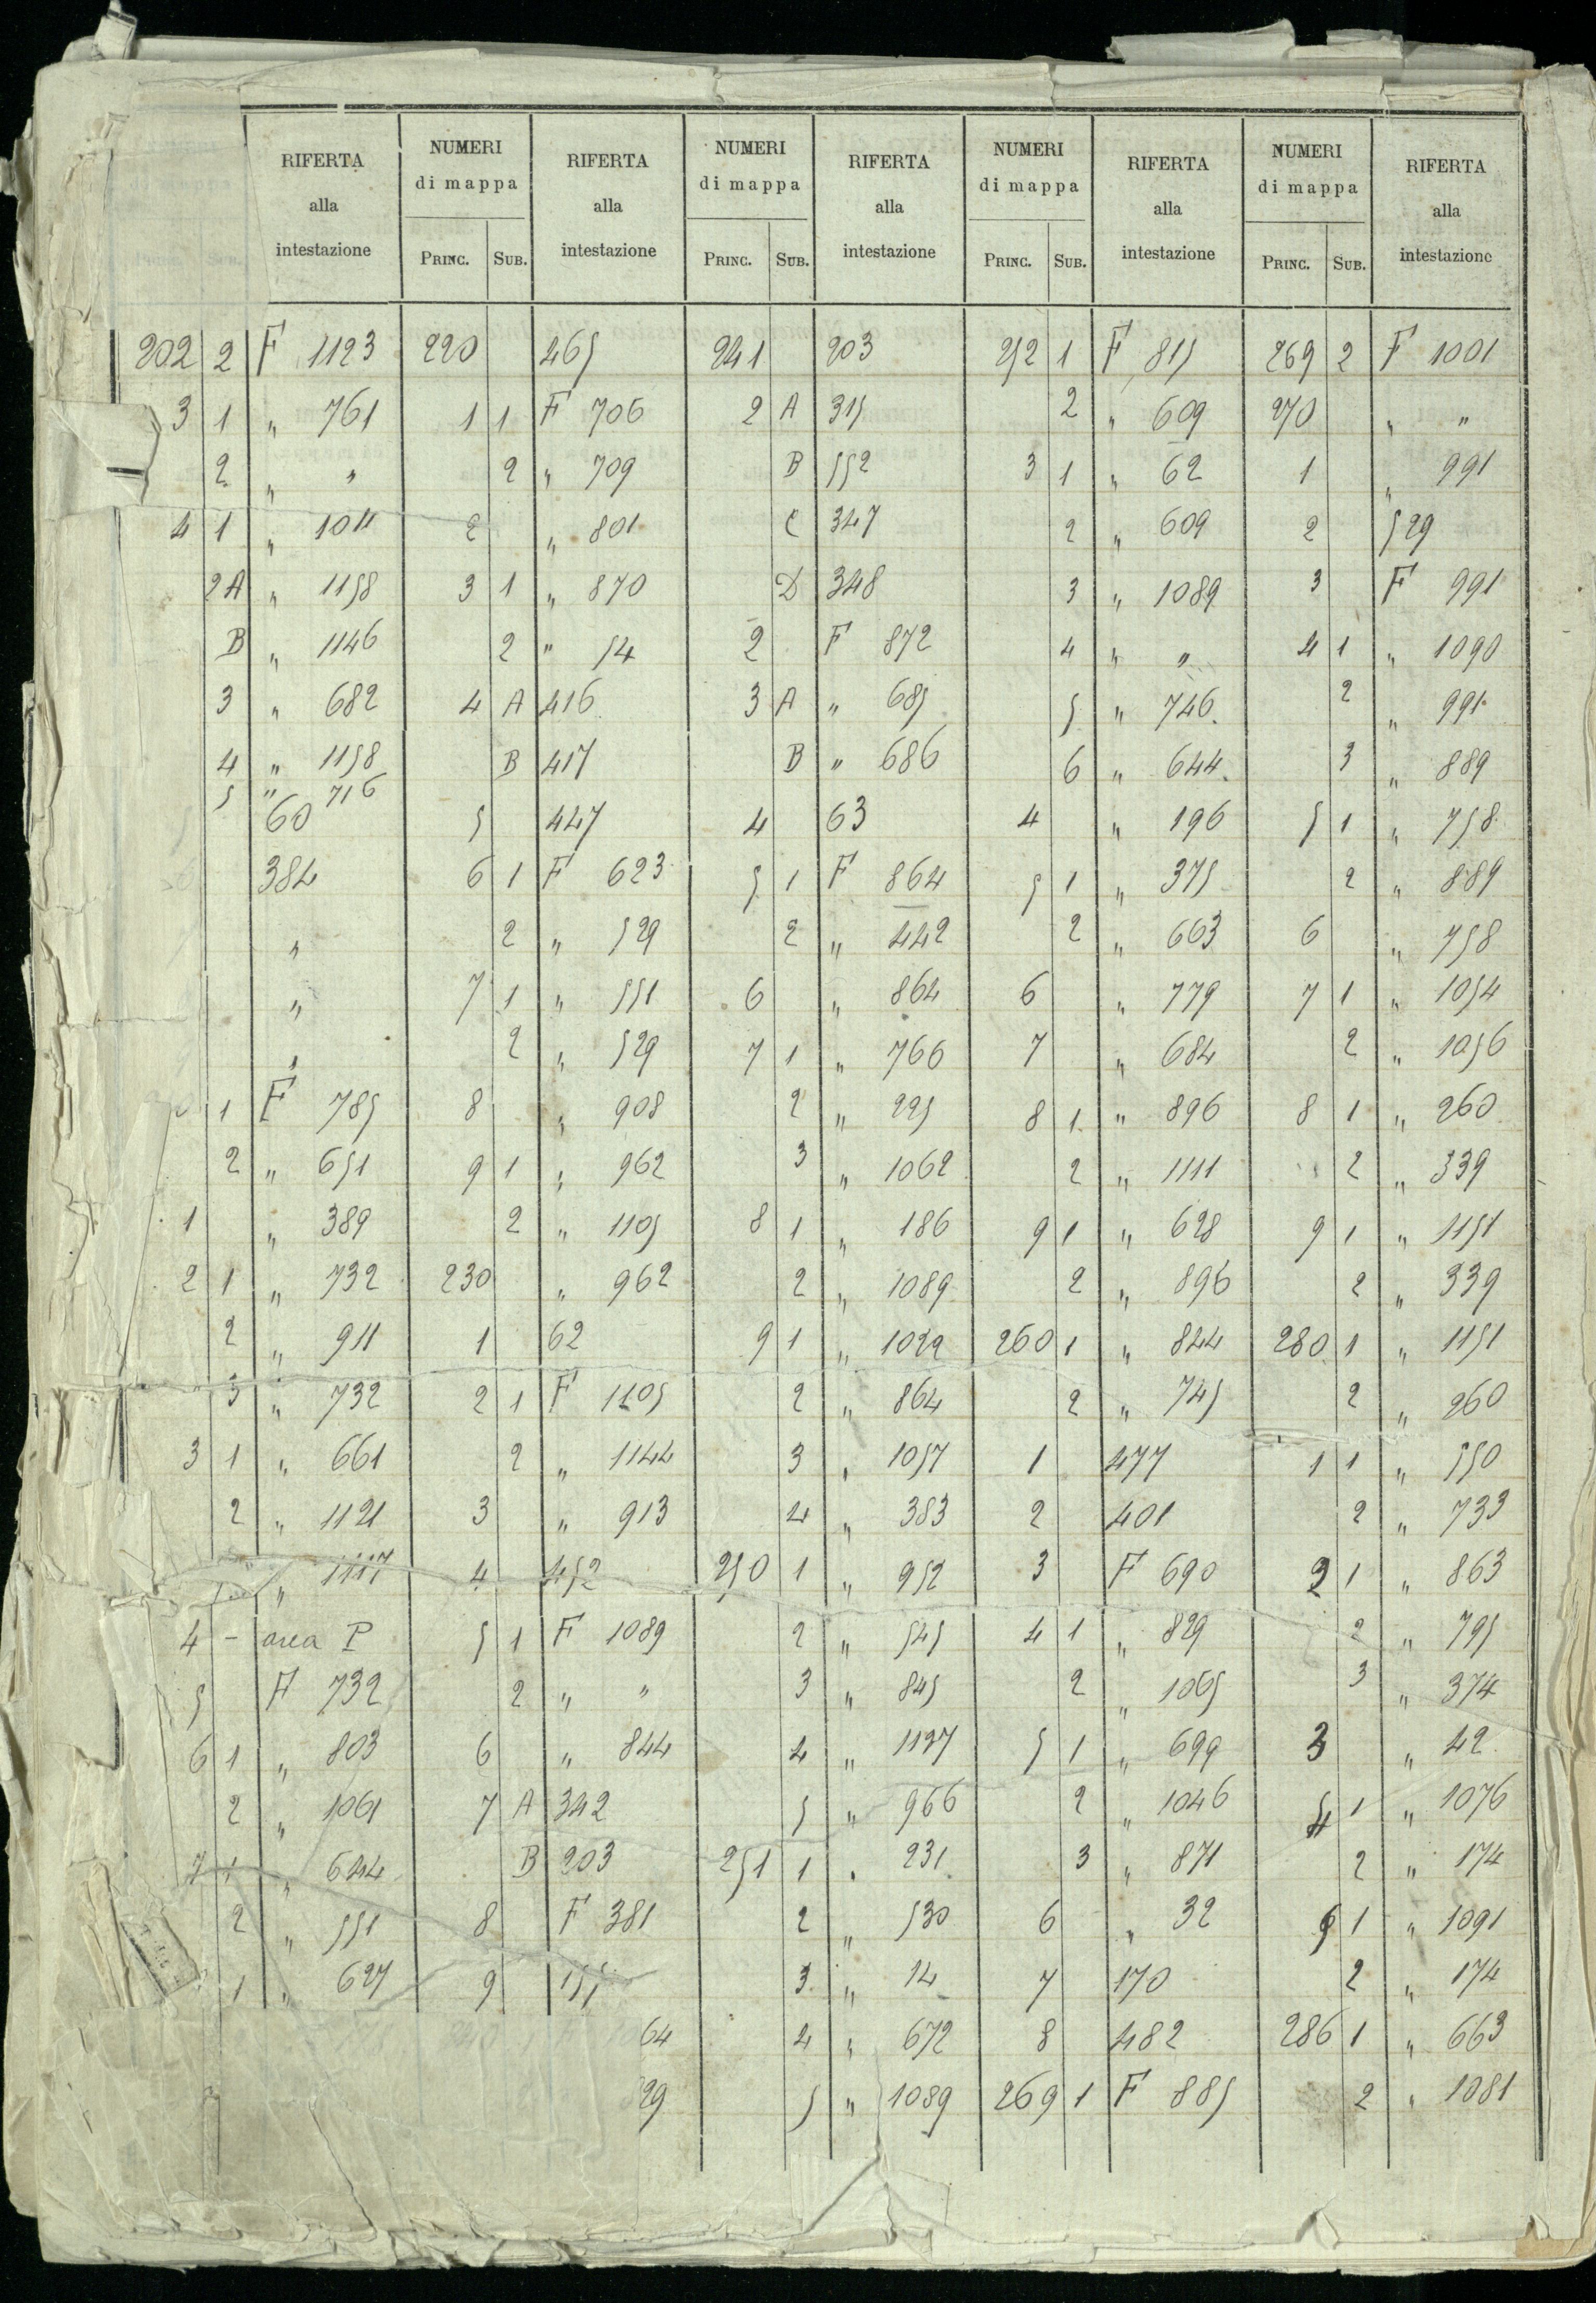 RIFERTA alla intestazione | NUMERI di mappa PRINC. SUB. | RIFERTA alla intestazione | NUMERI di mappa PRINC. SUB. | RIFERTA alla intestazione | NUMERI di mappa PRINC. SUB. | RIFERTA alla intestazione | NUMERI di mappa PRINC. SUB. | RIFERTA alla intestazione
202 2 F 1123 220 465 241 203 252 1 F 815 269 2 F 1001
3 1 " 761 1 1 F 706 2 A 315 2 " 609 270 " "
2 " " 2 " 709 B 552 3 1 " 62 1 " 991
4 1 " 1011 2 " 801 C 347 2 " 609 2 529
2A " 1158 3 1 " 870 D 348 3 " 1089 3 F 991
B " 1146 2 " 54 2 F 872 4 " " 4 1 " 1090
3 " 682 4 A 416 3 A " 685 5 " 746 2 " 991
4 " 1158 B 417 B " 686 6 " 644 3 " 889
5 " 716
60 5 447 4 63 4 " 196 5 1 " 758
384 6 1 F 623 5 1 F 864 5 1 " 375 2 " 889
" 2 " 529 2 " 442 2 " 663 6 " 758
" 7 1 " 551 6 " 864 6 " 779 7 1 " 1054
" 2 " 529 7 1 " 766 7 " 684 2 " 1056
1 F 785 8 " 908 2 " 225 8 1 " 896 8 1 " 260
2 " 651 9 1 " 962 3 " 1062 2 " 1111 2 " 339
1 " 389 2 " 1105 8 1 " 186 9 1 " 628 9 1 " 1151
2 1 " 732 230 " 962 2 " 1089 2 " 896 2 " 339
2 " 911 1 62 9 1 " 1029 260 1 " 844 280 1 " 1151
3 " 732 2 1 F 1105 2 " 864 2 " 745 2 " 260
3 1 " 661 2 " 1144 3 " 1057 1 477 1 1 " 550
2 " 1121 3 " 913 4 " 383 2 401 2 " 733
" 1117 4 452 250 1 " 952 3 F 690 2 1 " 863
4 - area P 5 1 F 1089 2 " 545 4 1 " 829 2 " 795
5 F 732 2 " " 3 " 845 2 " 1065 3 " 374
6 1 " 803 6 " 844 4 " 1127 5 1 " 699 3 " 42
2 " 1061 7 A 342 5 " 966 2 " 1046 4 1 " 1076
7 1 " 644 B 203 251 1 " 231 3 " 871 2 " 174
2 " 551 8 F 381 2 " 530 6 " 32 5 1 " 1091
1 " 627 9 155 3 " 14 7 170 2 " 174
64 4 " 672 8 482 286 1 " 663
29 5 " 1089 269 1 F 885 2 " 1081